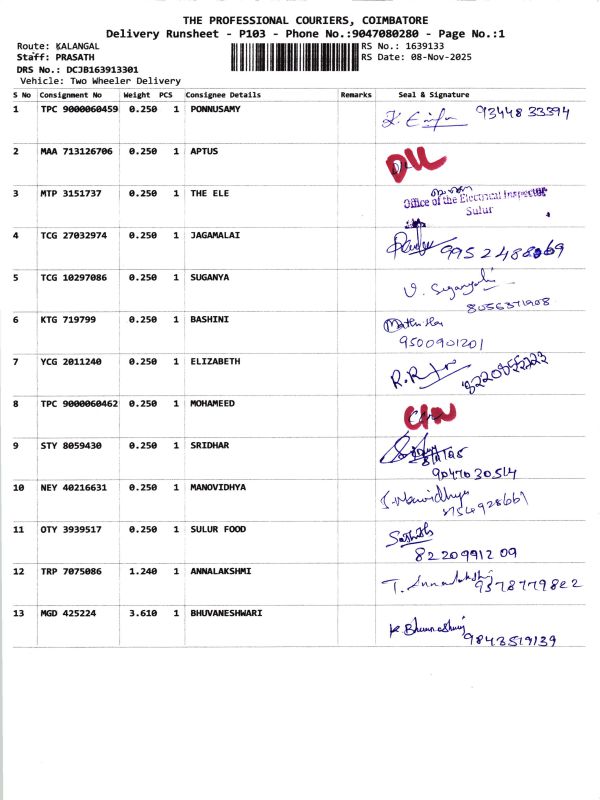 THE PROFESSIONAL COURIERS, COIMBATORE
Delivery Runsheet - P103 - Phone No.:9047080280 - Page No.:1
Route: KALANGAL RS No.: 1639133
Staff: PRASATH RS Date: 08-Nov-2025
DRS No.: DCJB163913301
Vehicle: Two Wheeler Delivery
S No Consignment No Weight PCS Consignee Details Remarks Seal & Signature
1 TPC 9000060459 0.250 1 PONNUSAMY 9344833394
2 MAA 713126706 0.250 1 APTUS DLL
3 MTP 3151737 0.250 1 THE ELE
Office of the Electrical Inspector
Sulur
4 TCG 27032974 0.250 1 JAGAMALAI
5 TCG 10297086 0.250 1 SUGANYA V. Suganya
8056371908
6 KTG 719799 0.250 1 BASHINI
9500901201
7 YCG 2011240 0.250 1 ELIZABETH
8 TPC 9000060462 0.250 1 MOHAMEED
9 STY 8059430 0.250 1 SRIDHAR
9047030514
10 NEY 40216631 0.250 1 MANOVIDHYA
11 OTY 3939517 0.250 1 SULUR FOOD
8220991209
12 TRP 7075086 1.240 1 ANNALAKSHMI T. Annalakshmi 9378779822
13 MGD 425224 3.610 1 BHUVANESHWARI
9843519139